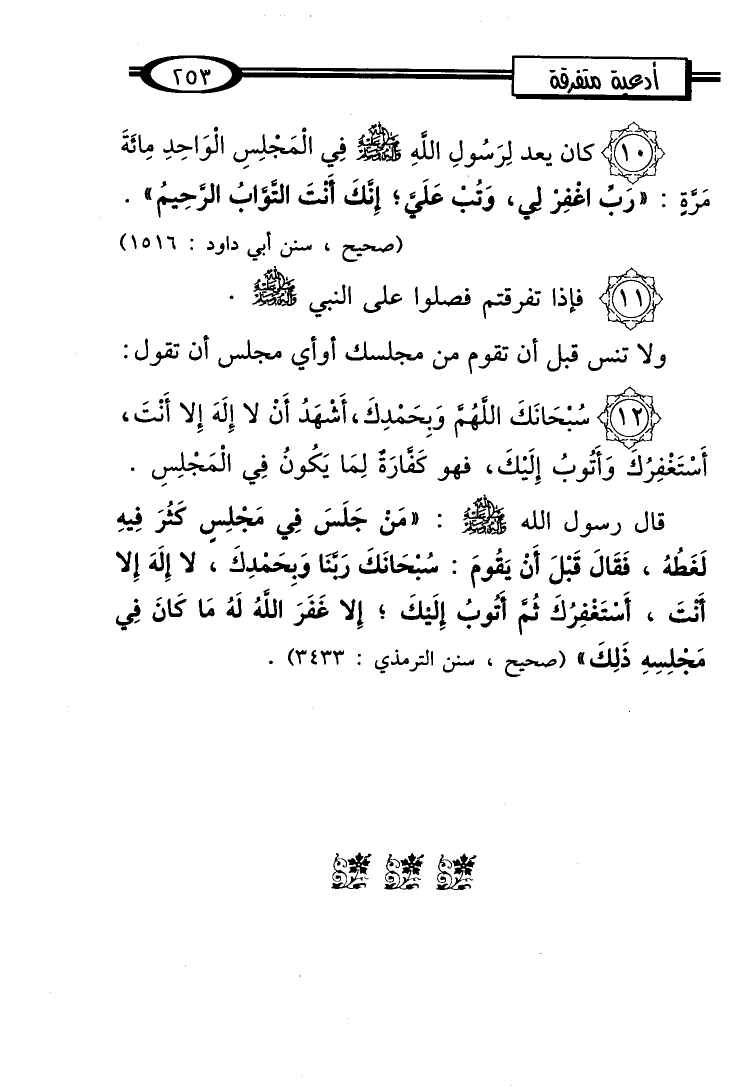 أدعية متفرقة
٢٥٣
١٠ كان يعد لِرَسُولِ اللَّهِ ﷺ فِي الْمَجْلِسِ الْوَاحِدِ مِائَةَ
مَرَّةٍ : «رَبِّ اغْفِرْ لِي، وَتُبْ عَلَيَّ؛ إِنَّكَ أَنْتَ التَّوَّابُ الرَّحِيمُ» .
(صحيح ، سنن أبي داود : ١٥١٦)
١١ فإذا تفرقتم فصلوا على النبي ﷺ .
ولا تنس قبل أن تقوم من مجلسك أوأي مجلس أن تقول:
١٢ سُبْحَانَكَ اللَّهُمَّ وَبِحَمْدِكَ،أَشْهَدُ أَنْ لا إِلَهَ إِلا أَنْتَ،
أَسْتَغْفِرُكَ وَأَتُوبُ إِلَيْكَ، فهو كَفَّارَةٌ لِمَا يَكُونُ فِي الْمَجْلِسِ .
قال رسول الله ﷺ : «مَنْ جَلَسَ فِي مَجْلِسٍ كَثُرَ فِيهِ
لَغَطُهُ ، فَقَالَ قَبْلَ أَنْ يَقُومَ : سُبْحَانَكَ رَبَّنَا وَبِحَمْدِكَ ، لا إِلَهَ إِلا
أَنْتَ ، أَسْتَغْفِرُكَ ثُمَّ أَتُوبُ إِلَيْكَ ؛ إِلا غَفَرَ اللَّهُ لَهُ مَا كَانَ فِي
مَجْلِسِهِ ذَلِكَ» (صحيح ، سنن الترمذي : ٣٤٣٣) .